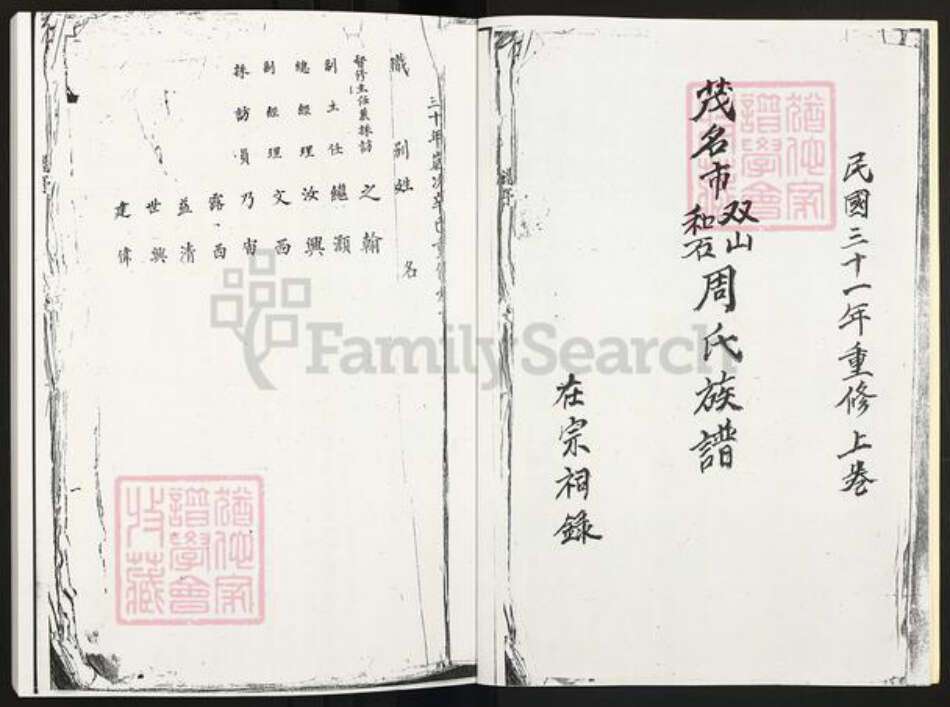 民國三十一年重修上卷
茂名市双山和石周氏族譜
在宗祠錄
三十年歲次辛巳重修
職別姓名
督修主任兼採訪之翰
副主任繼灝
總經理汝興
副經理文西
採訪員乃宙
露西
益清
世興
建偉
譜學會
收藏
FamilySearch